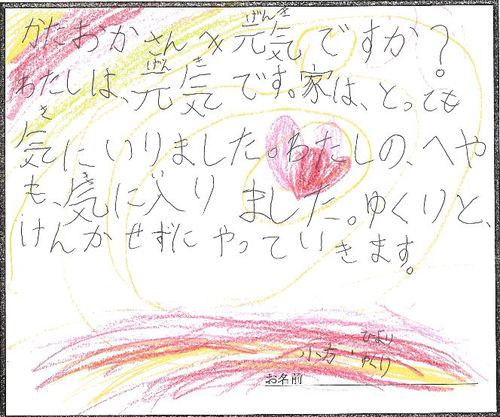 かたおかさんへ元気ですか？
わたしは、元気です。家は、とっても
気にいりました。わたしの、へや
も、気に入りました。ゆくりと、
けんかせずにやっていきます。
小方・ひより
ゆくり
お名前